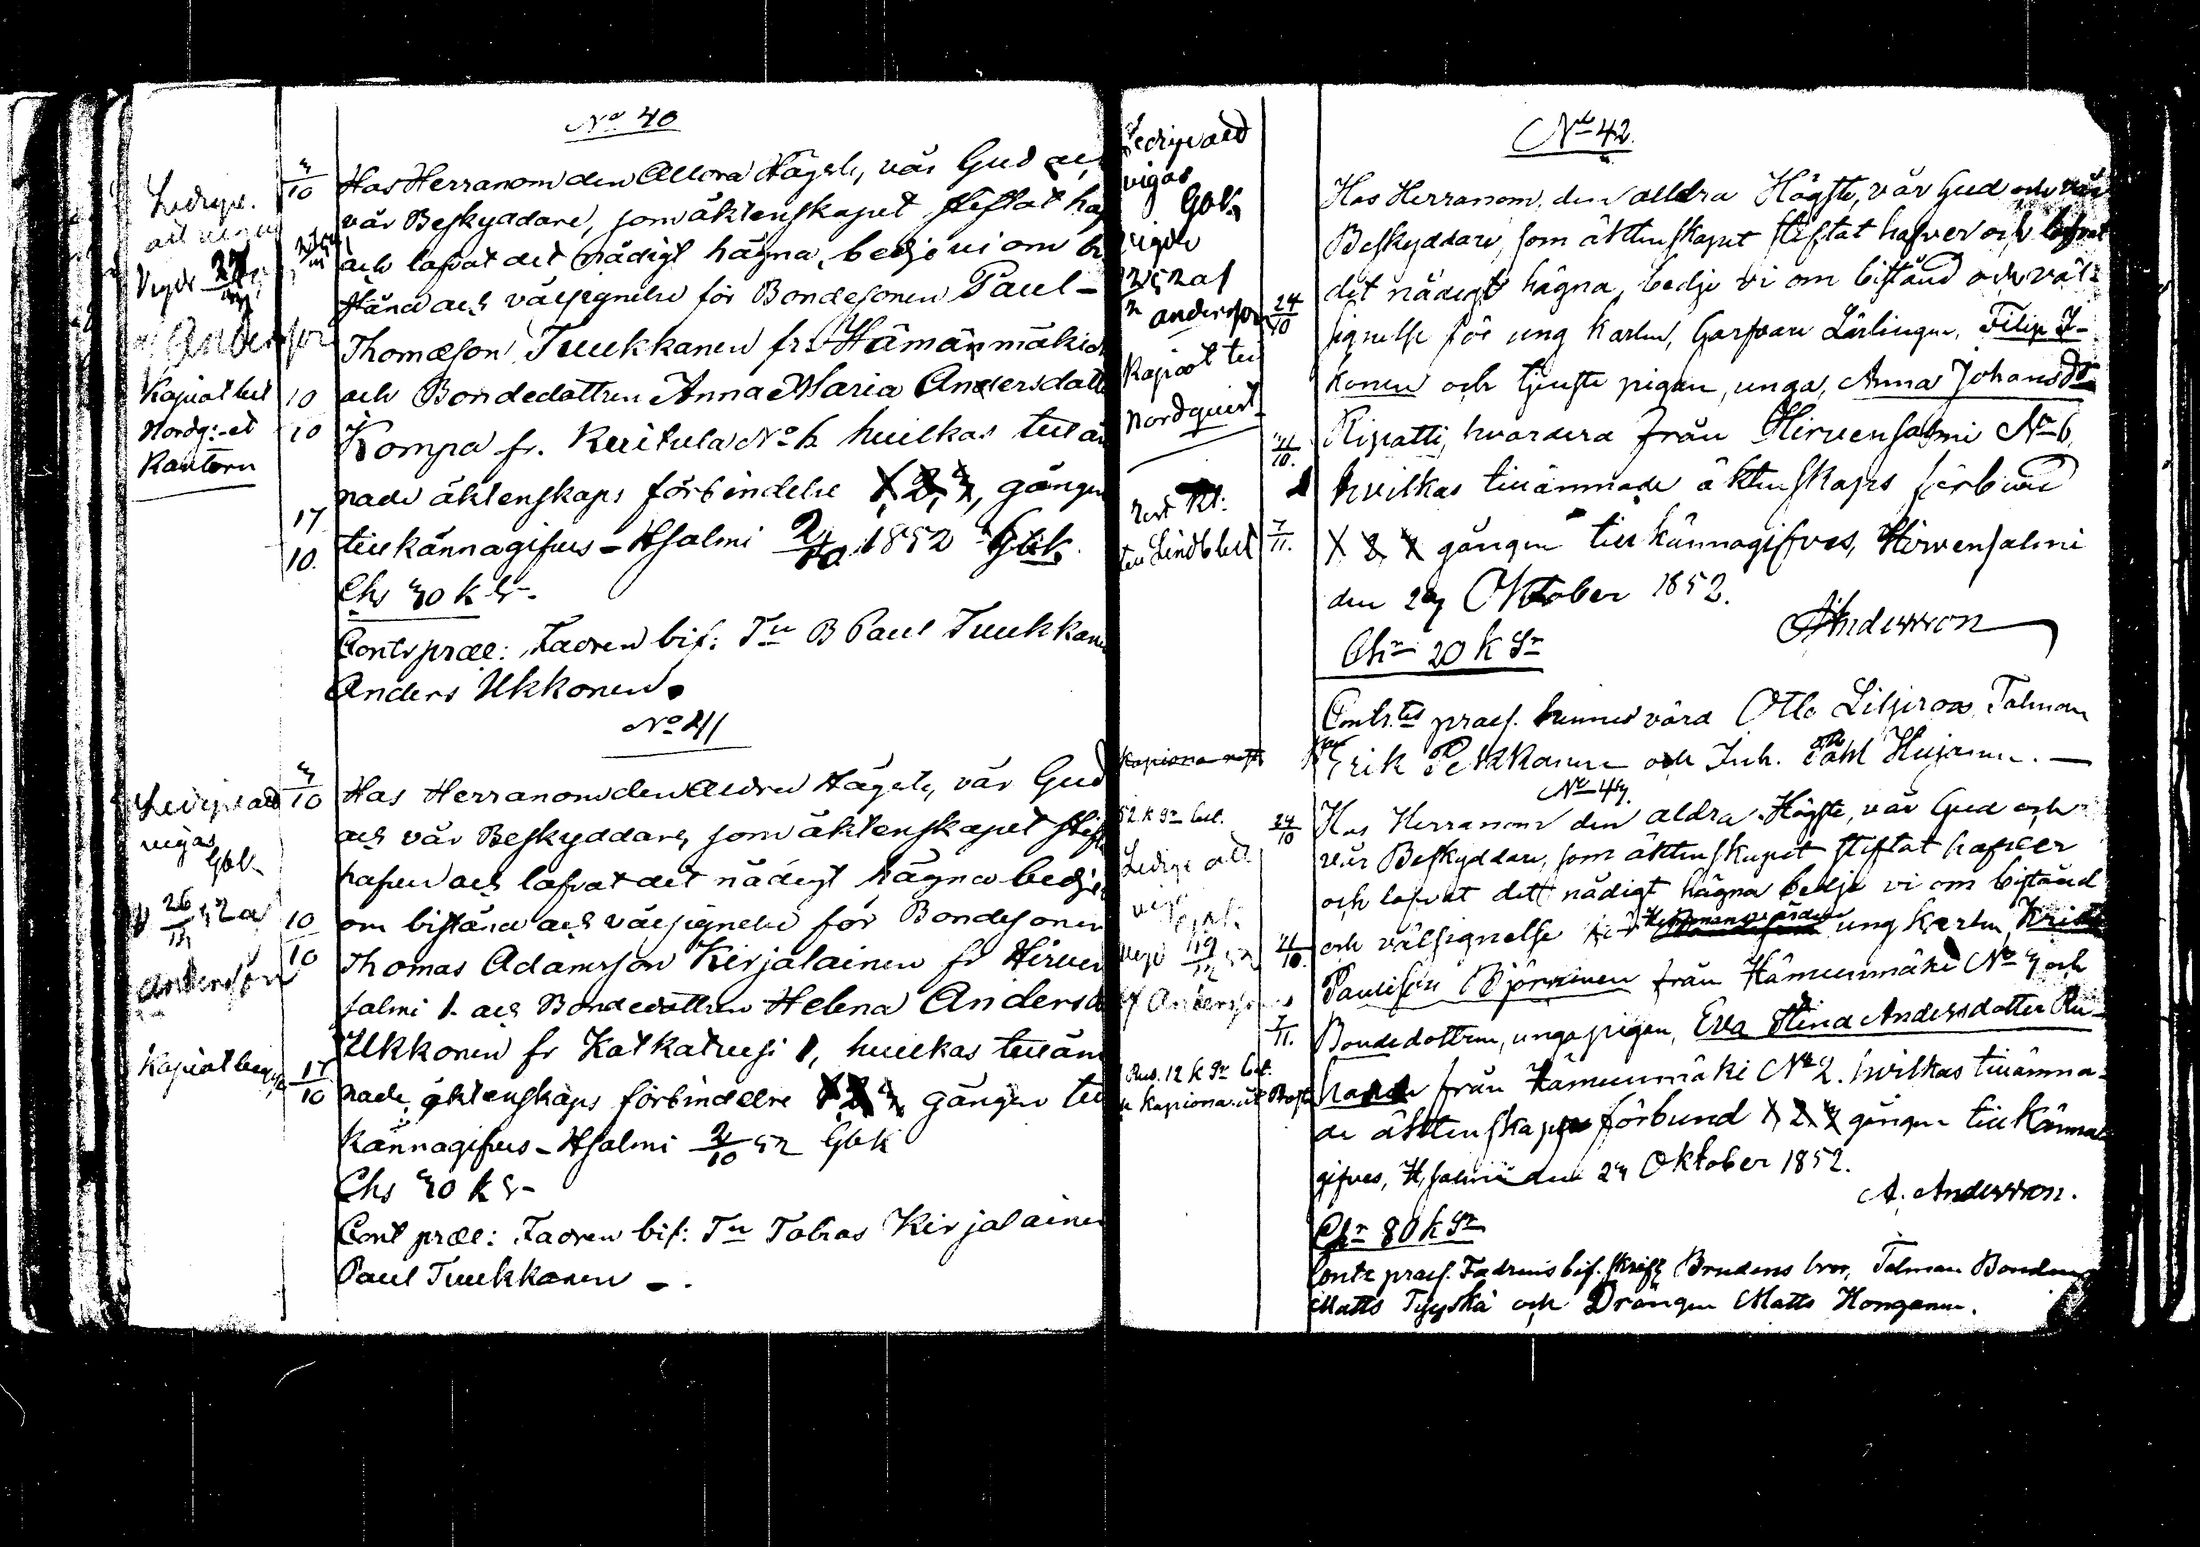 No 40
Ledige
Viges
Anderson
Kapiat bet
Nordq:et
Kantorn
3/10
10
10
17
10.
Hos Herranom den Aldra Högste, vår Gud och
vår Beskyddare, som äktenskapet stiftat haf
och lofvat det nådigt hägna, bedje vi om bi
stånd och välsignelse för Bondesonen Paul-
Thomæson Tuukkanen fr. Hämänmäki
och Bondedottren Anna Maria Andersdott
Kompa fr. Kuitula No 6 hvilkas tillär
nade äktenskaps förbindelse 1, 2, 3, gången
tillkännagifves - Hsalmi 2/10 1852 Gbk
Chs 30 k Sr
Contr præs: Fadren bif: Tn B Paul Tuukkane
Anders Ukkonen.
No 41
Ledige att
vigas
Gbk
26/12 52 a
Anderson
Kapiat
3/10
10
10
17
10
Hos Herranom den Aldra Högste, vår Gud
och vår Beskyddare, som äktenskapet stift
hafver och lofvat det nådigt hägna bedje
om bistånd och välsignelse för Bondesonen
Thomas Adamsson Kirjalainen fr Hirven
salmi 1 och Bondedottren Helena Andersd
Ukkonen fr Katkatursi 1, hvilkas tilläm
nade äktenskaps förbindelse 1 2 3 gången till
kännagifves - Hsalmi 2/10 52 Gbk
Chs 30 k Sr
Cont præs: Fadren bif: Tn Tobias Kirjalainen
Paul Tuukkanen -.
No 42.
Ledige att
vigas
Gbk
Anderson
Kapiat till
Nordqvist
till Lindblad
24/10
31/10.
7/11.
Hos Herranom, den alldra Högste, vår Gud och vår
Beskyddare, som äktenskapet stiftat hafver och lofvat
det nådigt hägna, bedje vi om bistånd och väl-
signelse för ung Karlen, Garfvare Lärlingen, Filip I-
konen och tjenste pigan, unga, Anna Johansdr
Ripatti, hvardera från Hirvensalmi No 6,
hvilkas tillämnade äktenskaps förbund
1 2 3 gången tillkännagifves, Hirvensalmi
den 23 Oktober 1852.
A. Anderson
Chr 20 k Sr
Contr.tes praes. husvärd Otto Liljeroos Talman
Erik Pekkanen och Inh. Påhl Huj
No 43.
Kapiona
52 k Sr bet.
Ledige att
Vigde 19/12 52
Af Anderson
Rus. 12 k Sr bet.
24/10
31/10.
7/11.
Hos Herranom den aldra Högste, vår Gud och
vår Beskyddare, som äktenskapet stiftat hafver
och lofvat dett nådigt hägna bedje vi om bistånd
och välsignelse för ung karlen,
Paulsson Björninen från Hämeenmäki No 3 och
Bondedottren, unga pigan, Eva Stina Andersdotter Ru-
hanen från Hämeenmäki No 2. hvilkas tillämna-
de äktenskaps förbund 1 2 3 gången tillkänna
gifves, H,salmi den 23 Oktober 1852.
A. Anderson.
Chr 80 k Sr
Contr praes. Fadrens bif. skriftl Brudens bror, Talman Bonden
Matts Tyyskä och Drängen Matts Honganen.